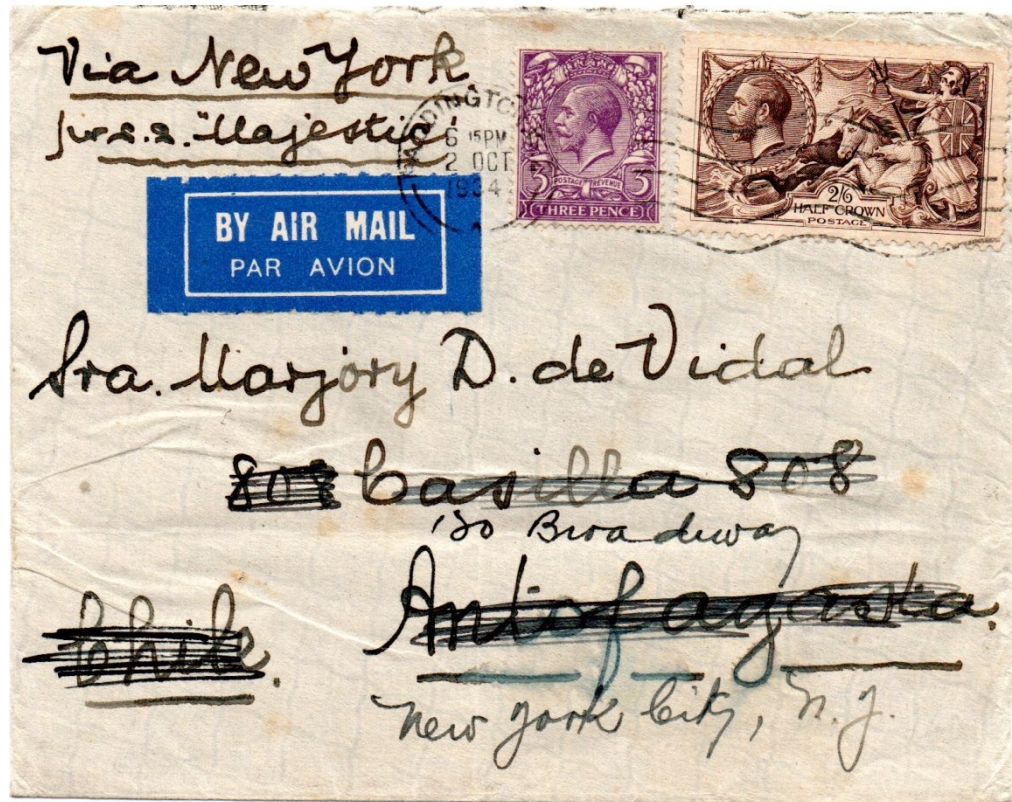 Via New York
per s.s. "Majestic"
PADDINGTO
6 15PM
2 OCT
1934
3 POSTAGE REVENUE 3
THREE PENCE
2/6
HALF CROWN
POSTAGE
BY AIR MAIL
PAR AVION
Sra. Marjory D. de Vidal
808 Casilla 808
130 Broadway
Antofagasta.
Chile.
New York City, N.Y.